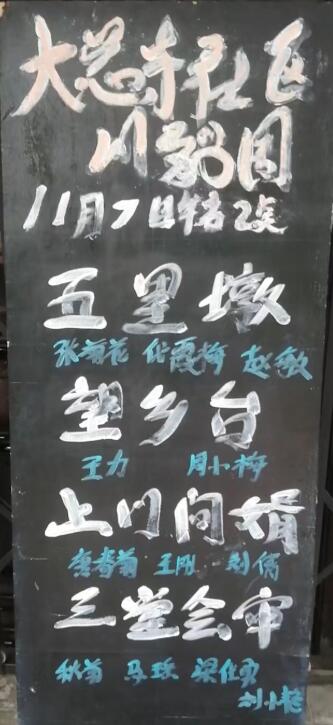 大慈寺社区
川剧团
11月7日特者2点
五里墩
张菊花 代霞梅 赵敏
望乡台
王力 周小梅
上门问婿
唐春菊 王刚 刘倩
三堂会审
秋菊 马跃 梁仕勇
刘小艳